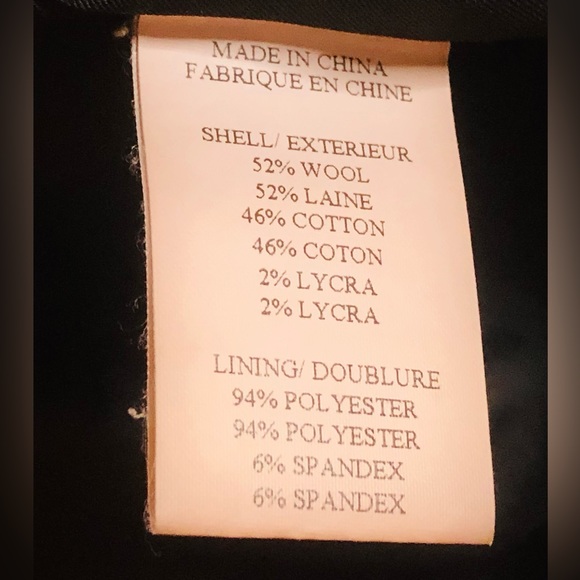 MADE IN CHINA
FABRIQUE EN CHINE
SHELL/ EXTERIEUR
52% WOOL
52% LAINE
46% COTTON
46% COTON
2% LYCRA
2% LYCRA
LINING/ DOUBLURE
94% POLYESTER
94% POLYESTER
6% SPANDEX
6% SPANDEX